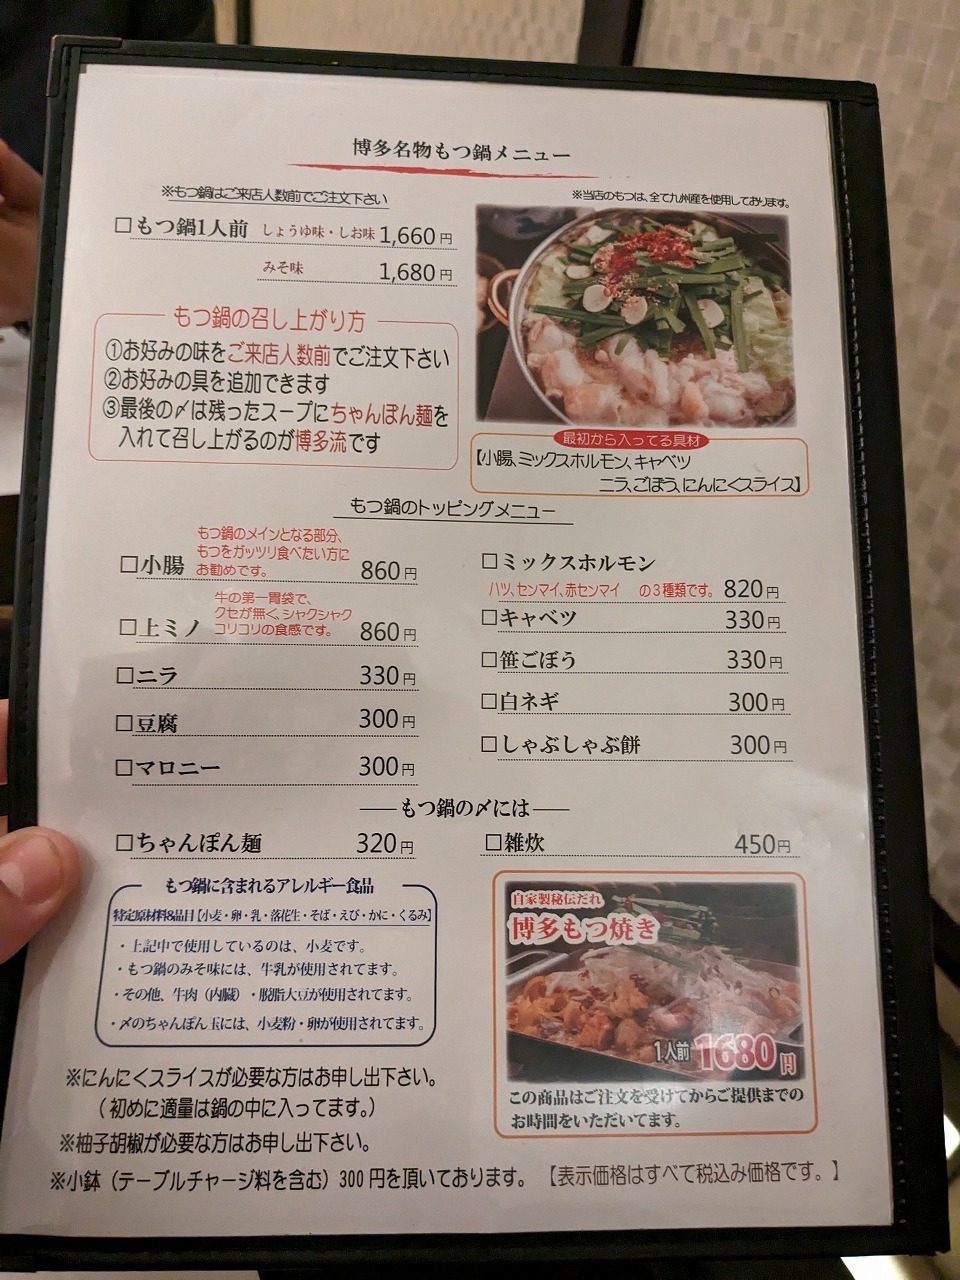 博多名物もつ鍋メニュー
※もつ鍋はご来店人数前でご注文下さい
※当店のもつは、全て九州産を使用しております。
□もつ鍋1人前 しょうゆ味・しお味 1,660円
みそ味 1,680円
もつ鍋の召し上がり方
①お好みの味をご来店人数前でご注文下さい
②お好みの具を追加できます
③最後の〆は残ったスープにちゃんぽん麺を
入れて召し上がるのが博多流です
最初から入ってる具材
【小腸、ミックスホルモン、キャベツ
ニラ、ごぼう、にんにくスライス】
もつ鍋のトッピングメニュー
もつ鍋のメインとなる部分、
もつをガッツリ食べたい方に
お勧めです。
□小腸 860円
牛の第一胃袋で、
クセが無く、シャクシャク
コリコリの食感です。
□上ミノ 860円
□ニラ 330円
□豆腐 300円
□マロニー 300円
□ミックスホルモン
ハツ、センマイ、赤センマイ の3種類です。 820円
□キャベツ 330円
□笹ごぼう 330円
□白ネギ 300円
□しゃぶしゃぶ餅 300円
もつ鍋の〆には
□ちゃんぽん麺 320円
□雑炊 450円
もつ鍋に含まれるアレルギー食品
特定原材料8品目【小麦・卵・乳・落花生・そば・えび・かに・くるみ】
・上記中で使用しているのは、小麦です。
・もつ鍋のみそ味には、牛乳が使用されてます。
・その他、牛肉(内臓)・脱脂大豆が使用されてます。
・〆のちゃんぽん玉には、小麦粉・卵が使用されてます。
自家製秘伝だれ
博多もつ焼き
1人前 1680円
この商品はご注文を受けてからご提供までの
お時間をいただいてます。
※にんにくスライスが必要な方はお申し出下さい。
(初めに適量は鍋の中に入ってます。)
※柚子胡椒が必要な方はお申し出下さい。
※小鉢(テーブルチャージ料を含む)300円を頂いております。 【表示価格はすべて税込み価格です。】